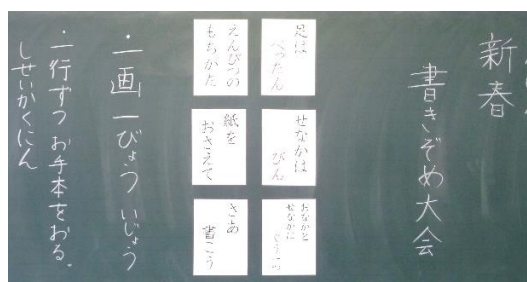 新春
書きぞめ大会
足は
ぺったん
せなかは
ぴん
おなかと
せなかに
えんぴつの
もちかた
紙を
おさえて
さあ
書こう
・一画一びょういじょう
・一行ずつお手本をおる。
しせいかくにん